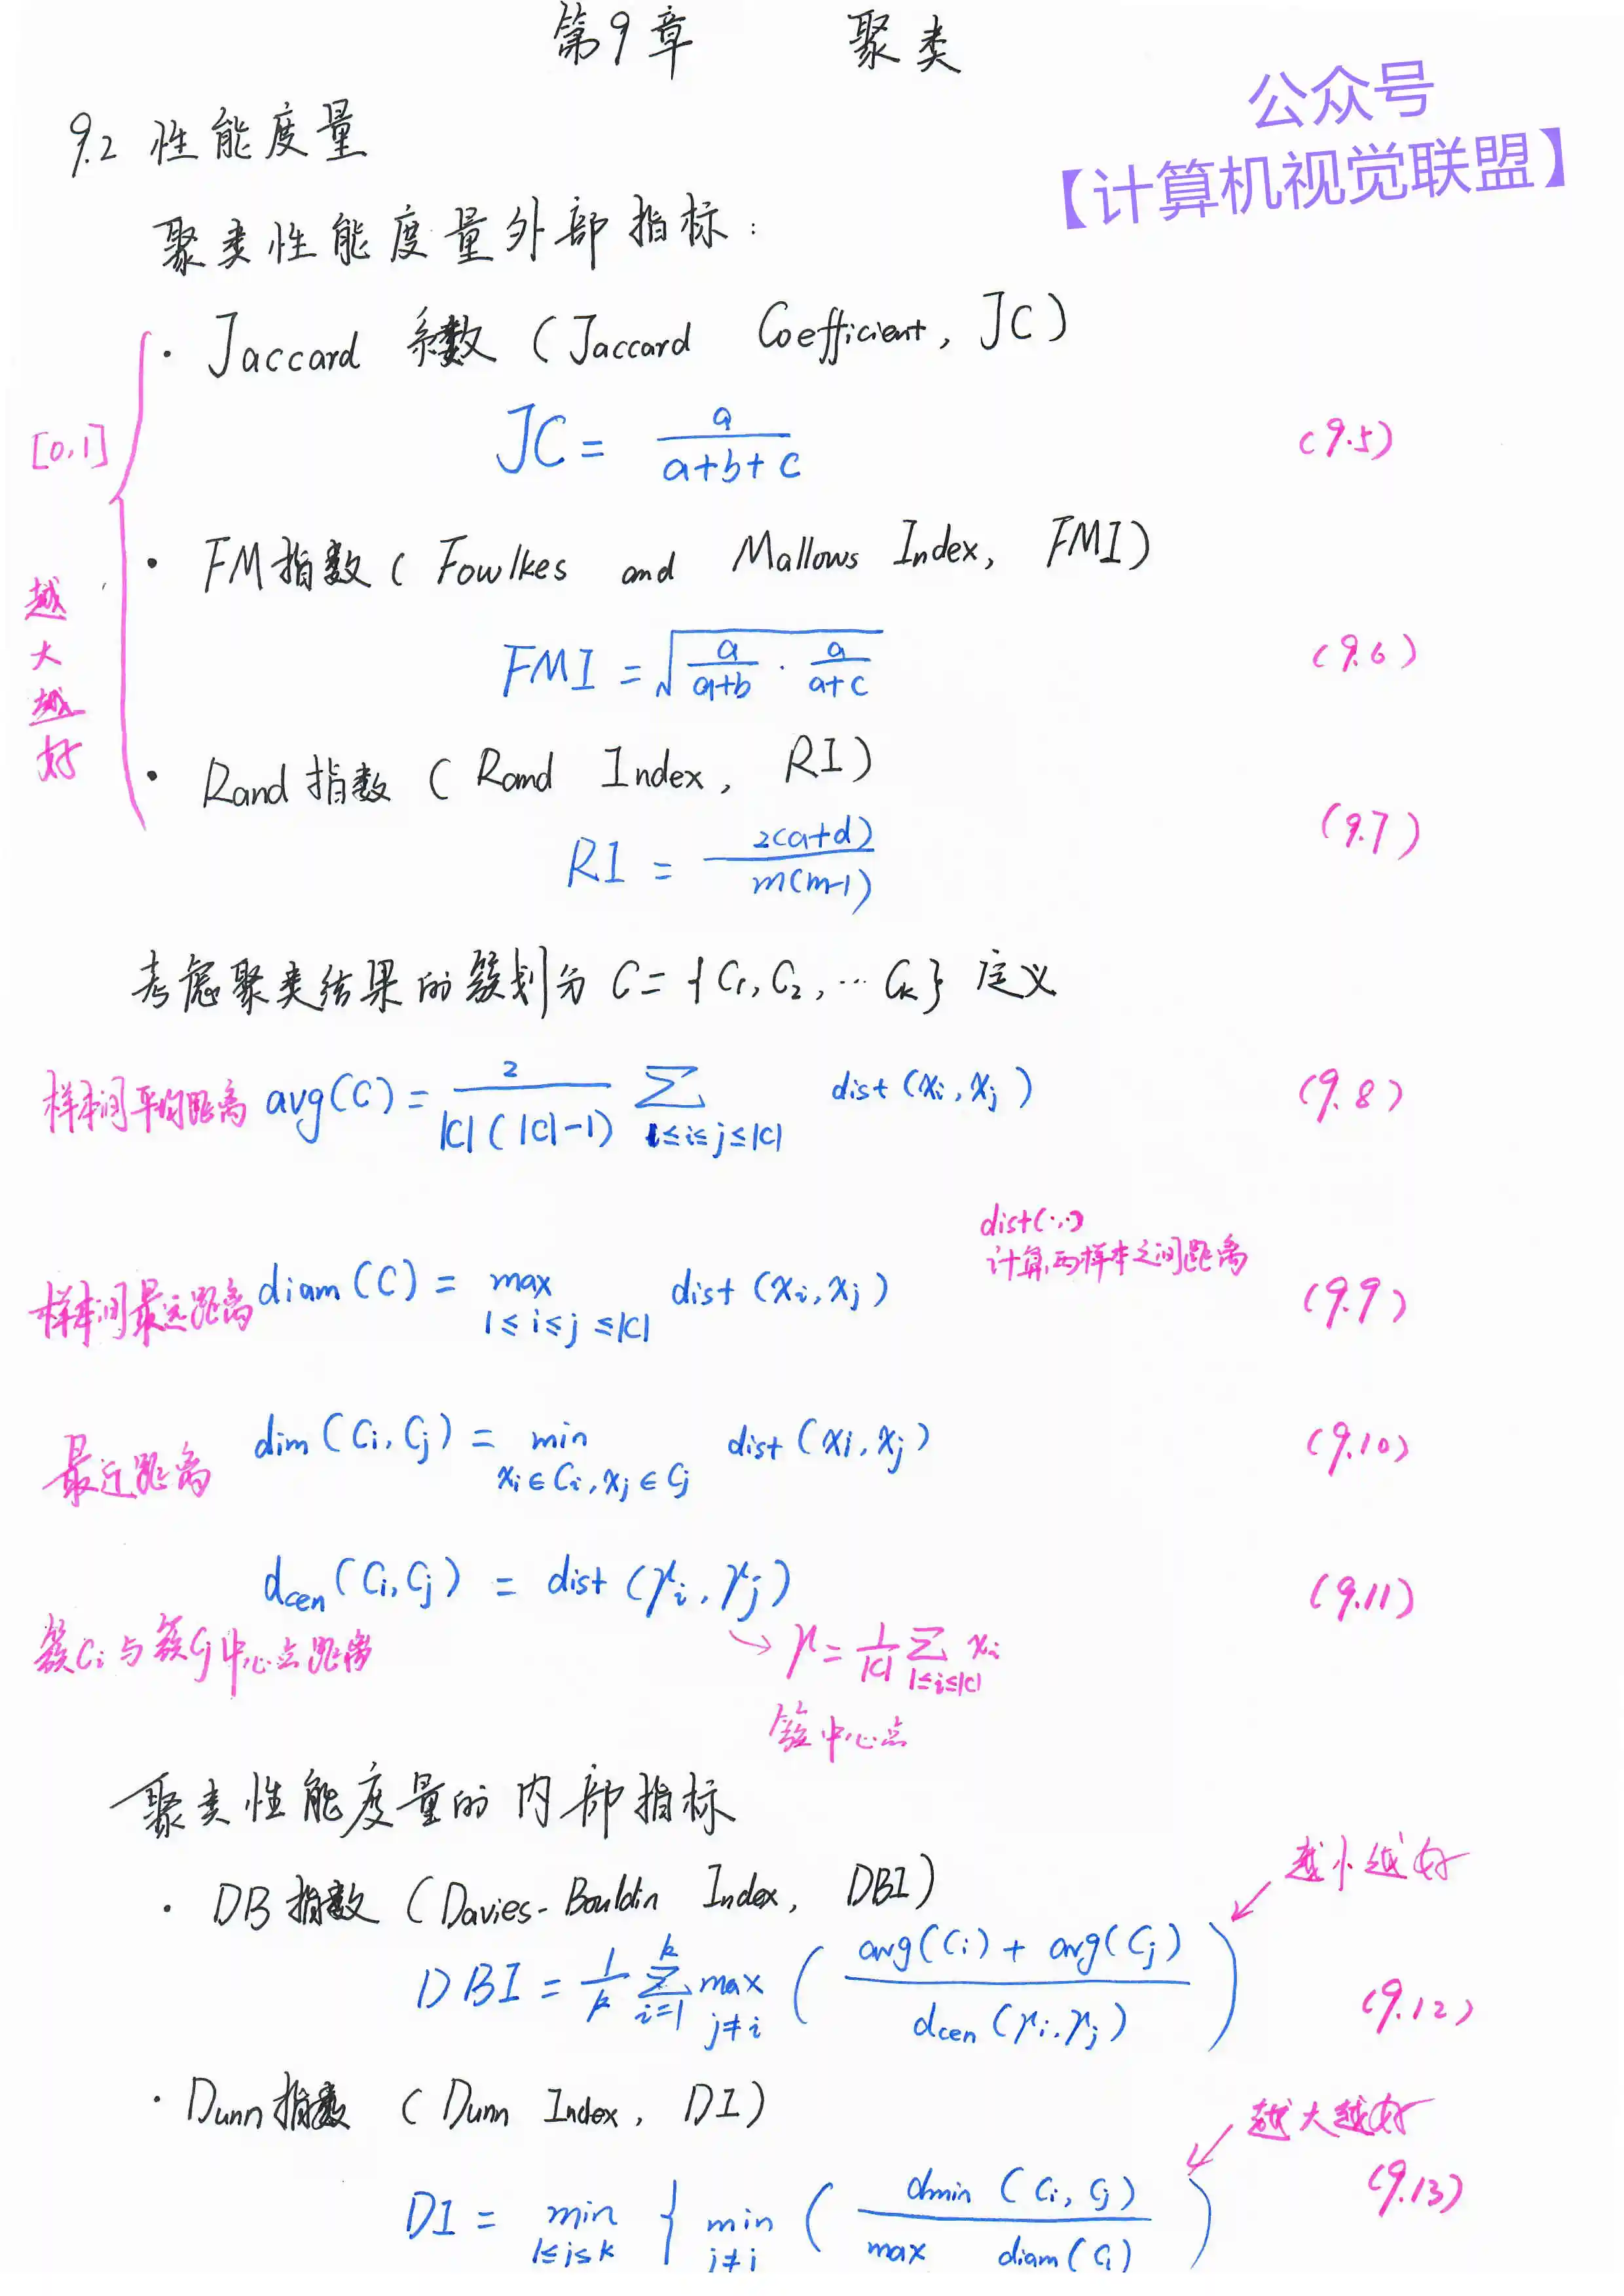 第9章 聚类
公众号
【计算机视觉联盟】
9.2 性能度量
聚类性能度量外部指标：
[0,1] 越大越好
· Jaccard 系数 (Jaccard Coefficient, JC)
JC = a/(a+b+c) (9.5)
· FM指数 (Fowlkes and Mallows Index, FMI)
FMI = √(a/(a+b) · a/(a+c)) (9.6)
· Rand指数 (Rand Index, RI)
RI = 2(a+d)/m(m-1) (9.7)
考虑聚类结果的簇划分 C={C₁,C₂,…Cₖ} 定义
样本间平均距离 avg(C) = 2/(|C|(|C|-1)) ∑ 1≤i≤j≤|C| dist(xᵢ,xⱼ) (9.8)
dist(·,·)
计算两样本之间距离
样本间最远距离 diam(C) = max 1≤i≤j≤|C| dist(xᵢ,xⱼ) (9.9)
最近距离 dim(Cᵢ,Cⱼ) = min xᵢ∈Cᵢ,xⱼ∈Cⱼ dist(xᵢ,xⱼ) (9.10)
dcen(Cᵢ,Cⱼ) = dist(μᵢ,μⱼ) (9.11)
簇Cᵢ与簇Cⱼ中心点距离 → μ = 1/|C| ∑ 1≤i≤|C| xᵢ
簇中心点
聚类性能度量的内部指标
越小越好
· DB指数 (Davies-Bouldin Index, DBI)
DBI = 1/k ∑ i=1 k max j≠i ( (avg(Cᵢ)+avg(Cⱼ))/dcen(μᵢ,μⱼ) ) (9.12)
· Dunn指数 (Dunn Index, DI)
越大越好
DI = min 1≤j≤k { min j≠i ( dmin(Cᵢ,Cⱼ)/max diam(Cₗ) ) (9.13)